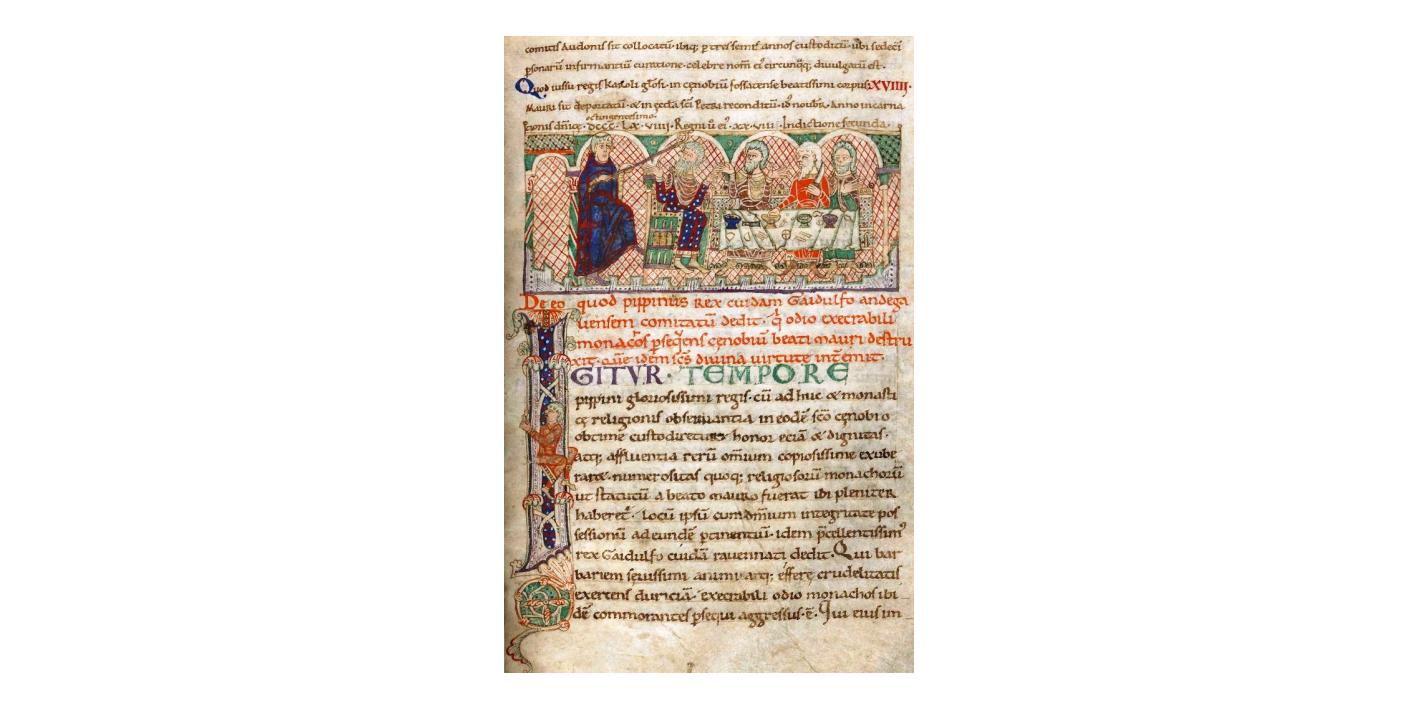 comitis Audonis sit collocatū· ibiq; p tres semis annos custoditū· ubi sedecī
psonarū infirmantiū curatione· celebre nom̄ ei' circūqq; diuulgatū est·
Quod iussu regis karoli gl̄osi· in cęnobiū fossatense beatissimi corpus XVIIII·
Mauri sit deportatū· & in ęccl̄a sc̄i Petri reconditū· id' nouēbr̄· Anno incarna
tionis dn̄icę· octingentesimo dccc· Lx· viiii· Regni ū ei'· xx· viiii· Indictione secunda·
De eo quod pippinus rex cuidam Gaidulfo andega
uensem comitatū dedit· q̄ odio execrabili
monachos pseqēns cęnobiū beati mauri destru
xit· quē idem sc̄s diuina uirtute intēmit·
IGITVR· TEMPORE
pippini gloriosissimi regis· cū adhuc & monasti
cę religionis obseruantia in eodē sc̄o cęnobio
obtime custodiretur· honor eciā & dignitas·
atq; affluentia rerū omīum copiosissime exube
raret· numerositas quoq; religiosorū monachorū
ut statutū a beato mauro fuerat ibi pleniter
haberet̄· locū ipsū cum om̄ium integritate pos
sessionū ad eundē ptinentiū· idem p̄cellentissim'
rex Gaidulfo cuidā rauennati dedit· Qui bar
bariem seuissimi animi· atq; efferę crudelitatis
exercens duriciā· execrabili odio monachos ibi
dē commorantes psequi aggressus· ē· Qui eius im